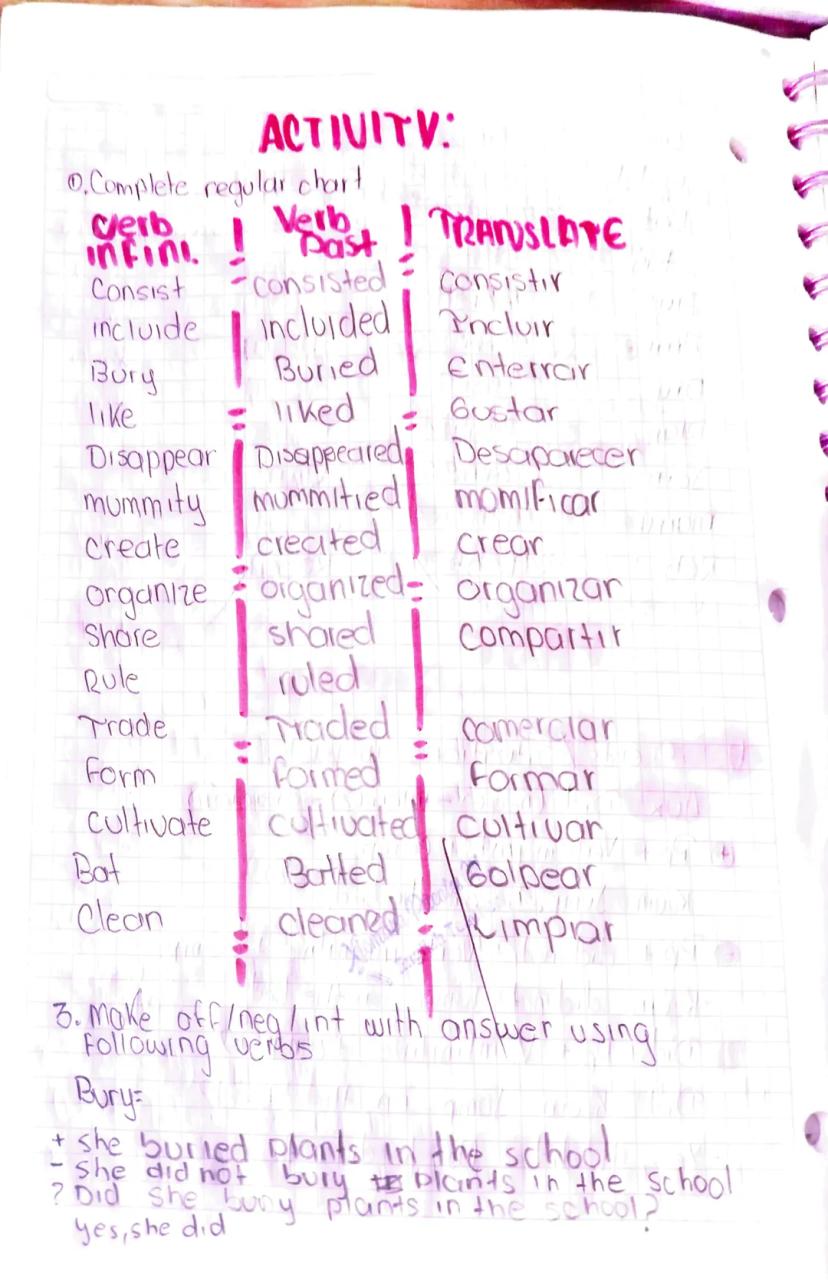 ACTIVITY:
①. Complete regular chart
Verb Verb TRANSLATE
infini. Past
Consist consisted consistir
incluide incluided Incluir
Bury Buried Enterrar
like liked Gustar
Disappear Disappeared Desaparecer
mummity mummitied momificar
create created crear
organize organized organizar
Share shared compartir
Rule ruled
Trade Traded comerciar
Form formed Formar
cultivate cultivated cultivar
Bat Batted Golpear
Clean cleaned Limpiar
3. Make aff/neg/int with answer using
following verbs
Bury=
+ she buried plants in the school
- she did not bury plants in the school
? Did she bury plants in the school?
yes, she did